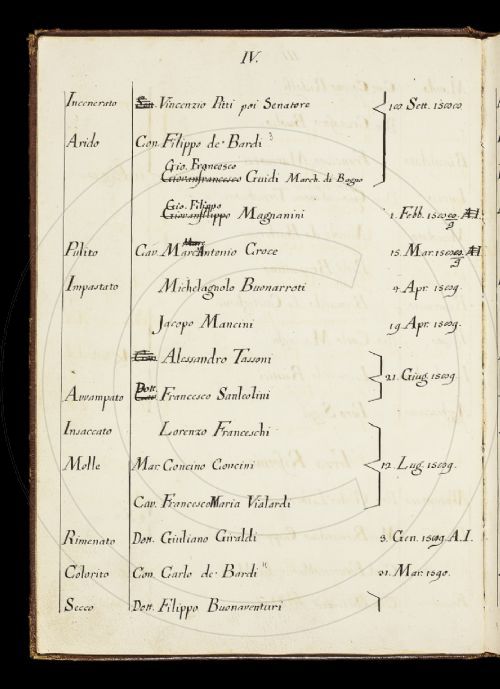 IV.
Incenerato Sen. Vincenzio Pitti poi Senatore
Arido Con. Filippo de' Bardi 3
Gio. Francesco
Giovanfrancesco Guidi March. di Bagno
Gio. Filippo
Giovanfilippo Magnanini 1. Febb.
Pulito Cav. Marc'Antonio Croce 15. Mar.
Impastato Michelagnolo Buonarroti 9. Apr. 1589.
Jacopo Mancini 19. Apr. 1589.
Alessandro Tassoni
21. Giug. 1589.
Dott.
Avvampato Francesco Sanleolini
Insaccato Lorenzo Franceschi
Molle Mar. Concino Concini 12. Lug. 1589.
Cav. Francesco Maria Vialardi
Rimenato Dott. Giuliano Giraldi 3. Gen. 1589 A.I.
Colorito Con. Carlo de' Bardi 31. Mar. 1590.
Secco Dott. Filippo Buonaventuri